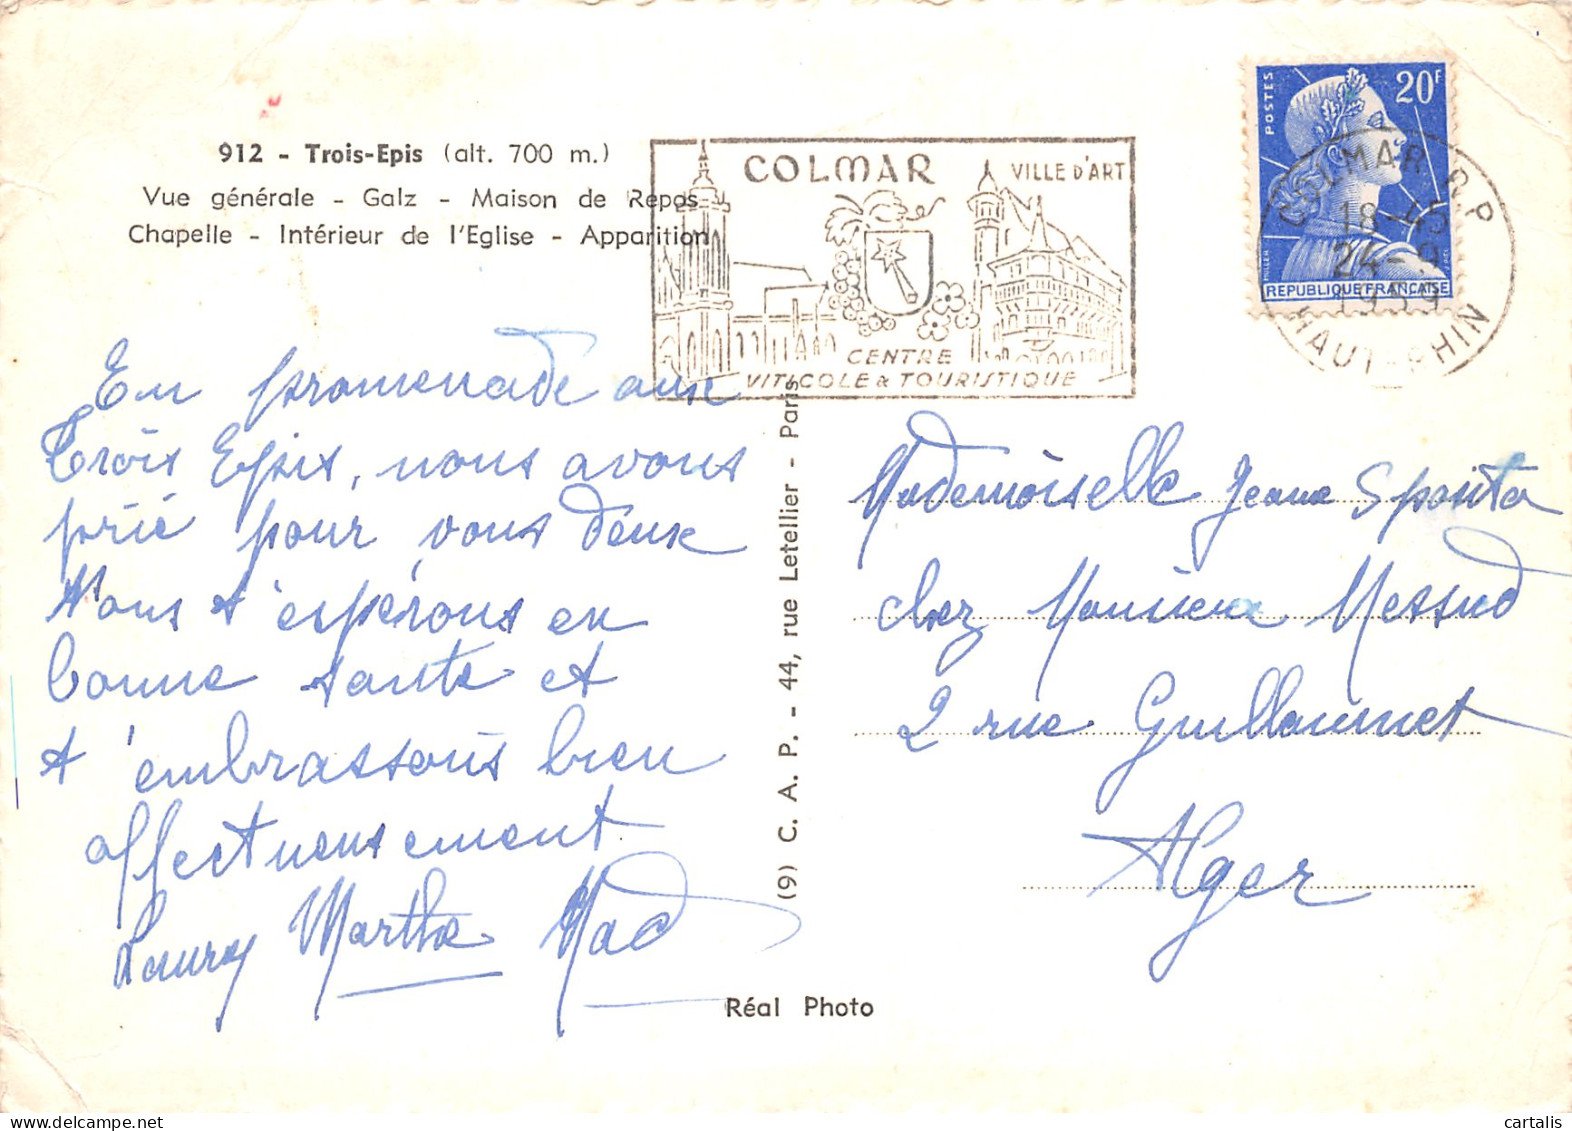 912 - Trois-Epis (alt. 700 m.)
Vue générale - Galz - Maison de Repos
Chapelle - Intérieur de l'Eglise - Apparition
COLMAR
VILLE D'ART
CENTRE
VITICOLE & TOURISTIQUE
POSTES
20F
MULLER
REPUBLIQUE FRANÇAISE
COLMAR R.P
18-45
24-9
1959
HAUT-RHIN
En promenade aux
Trois Epis, nous avons
prié pour vous deux
Nous t'espérons en
bonne santé et
t'embrassons bien
affectueusement
Laury Martha Mad
(9) C. A. P. - 44, rue Letellier - Paris
Réal Photo
Mademoiselle Jeanne
chez Monsieur Messud
2 rue Guillaumet
Alger
cartalis